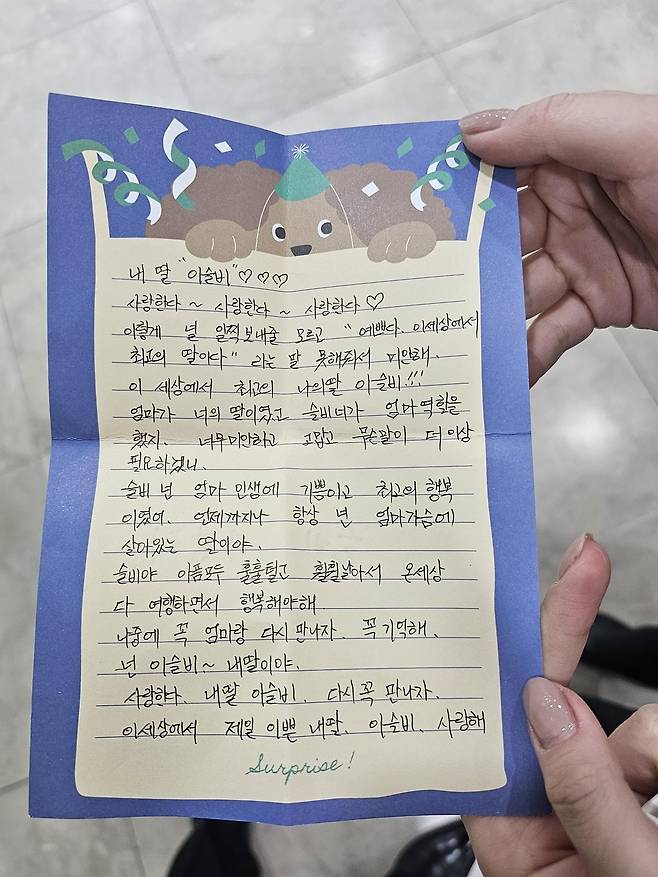 내 딸 "이슬비" ♡♡♡
사랑한다 ~ 사랑한다 ~ 사랑한다 ♡
이렇게 널 일찍 보내줄 모르고 "예쁘다. 이세상에서
최고의 딸이다" 라는 말 못해줘서 미안해.
이 세상에서 최고의 나의딸 이슬비!!!
엄마가 너의 딸이였고 슬비너가 엄마역할을
했지. 너무미안하고 고맙고 무슨말이 더이상
필요하겠니.
슬비 넌 엄마 인생에 기쁨이고 최고의 행복
이였어. 언제까지나 항상 넌 엄마가슴에
살아있는 딸이야.
슬비야 아픔모두 훌훌털고 훨훨날아서 온세상
다 여행하면서 행복해야해
나중에 꼭 엄마랑 다시만나자. 꼭기억해.
넌 이슬비~ 내딸이야.
사랑한다. 내딸 이슬비. 다시꼭 만나자.
이세상에서 제일 이쁜 내딸. 이슬비. 사랑해
Surprise!